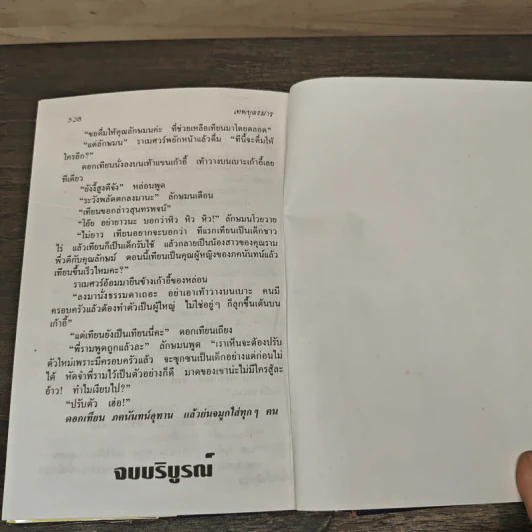 ๖๐๒ เทพบุตรมาร
"ขอดื่มให้คุณลักษมนค่ะ ที่ช่วยเหลือเทียนมาโดยตลอด"
"แด่ลักษมน" ราเมศวร์พยักหน้าแล้วดื่ม "ทีนี้จะดื่มให้
ใครอีก?"
ดอกเทียนนั่งลงบนเท้าแขนเก้าอี้ เท้าวางบนเบาะเก้าอี้เลย
ทีเดียว
"ยังงี้สูงดีจัง" หล่อนพูด
"ระวังพลัดตกลงมานะ" ลักษมนเตือน
"เทียนขอกล่าวสุนทรพจน์"
"โอ๊ย อย่ายาวนะ บอกว่าหิว หิว หิว!" ลักษมนโวยวาย
"ไม่ยาว เทียนอยากจะบอกว่า ทีแรกเทียนเป็นเด็กชาว
ไร่ แล้วเทียนก็เป็นเด็กรับใช้ แล้วกลายเป็นน้องสาวของคุณราม
พี่วดีกับคุณลักษม์ ตอนนี้เทียนเป็นคุณผู้หญิงของภคนันทน์แล้ว
เทียนขึ้นเร็วไหมคะ?"
ราเมศวร์อ้อมมายืนข้างเก้าอี้ของหล่อน
"ลงมานั่งธรรมดาเถอะ อย่าเอาเท้าวางบนเบาะ คนมี
ครอบครัวแล้วต้องทำตัวเป็นผู้ใหญ่ ไม่ใช่อยู่ๆ ก็ลุกขึ้นเต้นบน
เก้าอี้"
"แต่เทียนยังเป็นเทียนนี่คะ" ดอกเทียนเถียง
"พี่รามพูดถูกแล้วละ" ลักษมนพูด "เราเห็นจะต้องปรับ
ตัวใหม่เพราะมีครอบครัวแล้ว จะซุกซนเป็นเด็กอย่างแต่ก่อนไม่
ได้ หัดจำพี่รามไว้เป็นตัวอย่างก็ดี มาดของเขาน่ะไม่มีใครสู้ละ
อ้าว! ทำไมเงียบไป?"
"ปรับตัว เฮ่อ!"
ดอกเทียน ภคนันทน์อุทาน แล้วย่นจมูกใส่ทุกๆ คน
จบบริบูรณ์